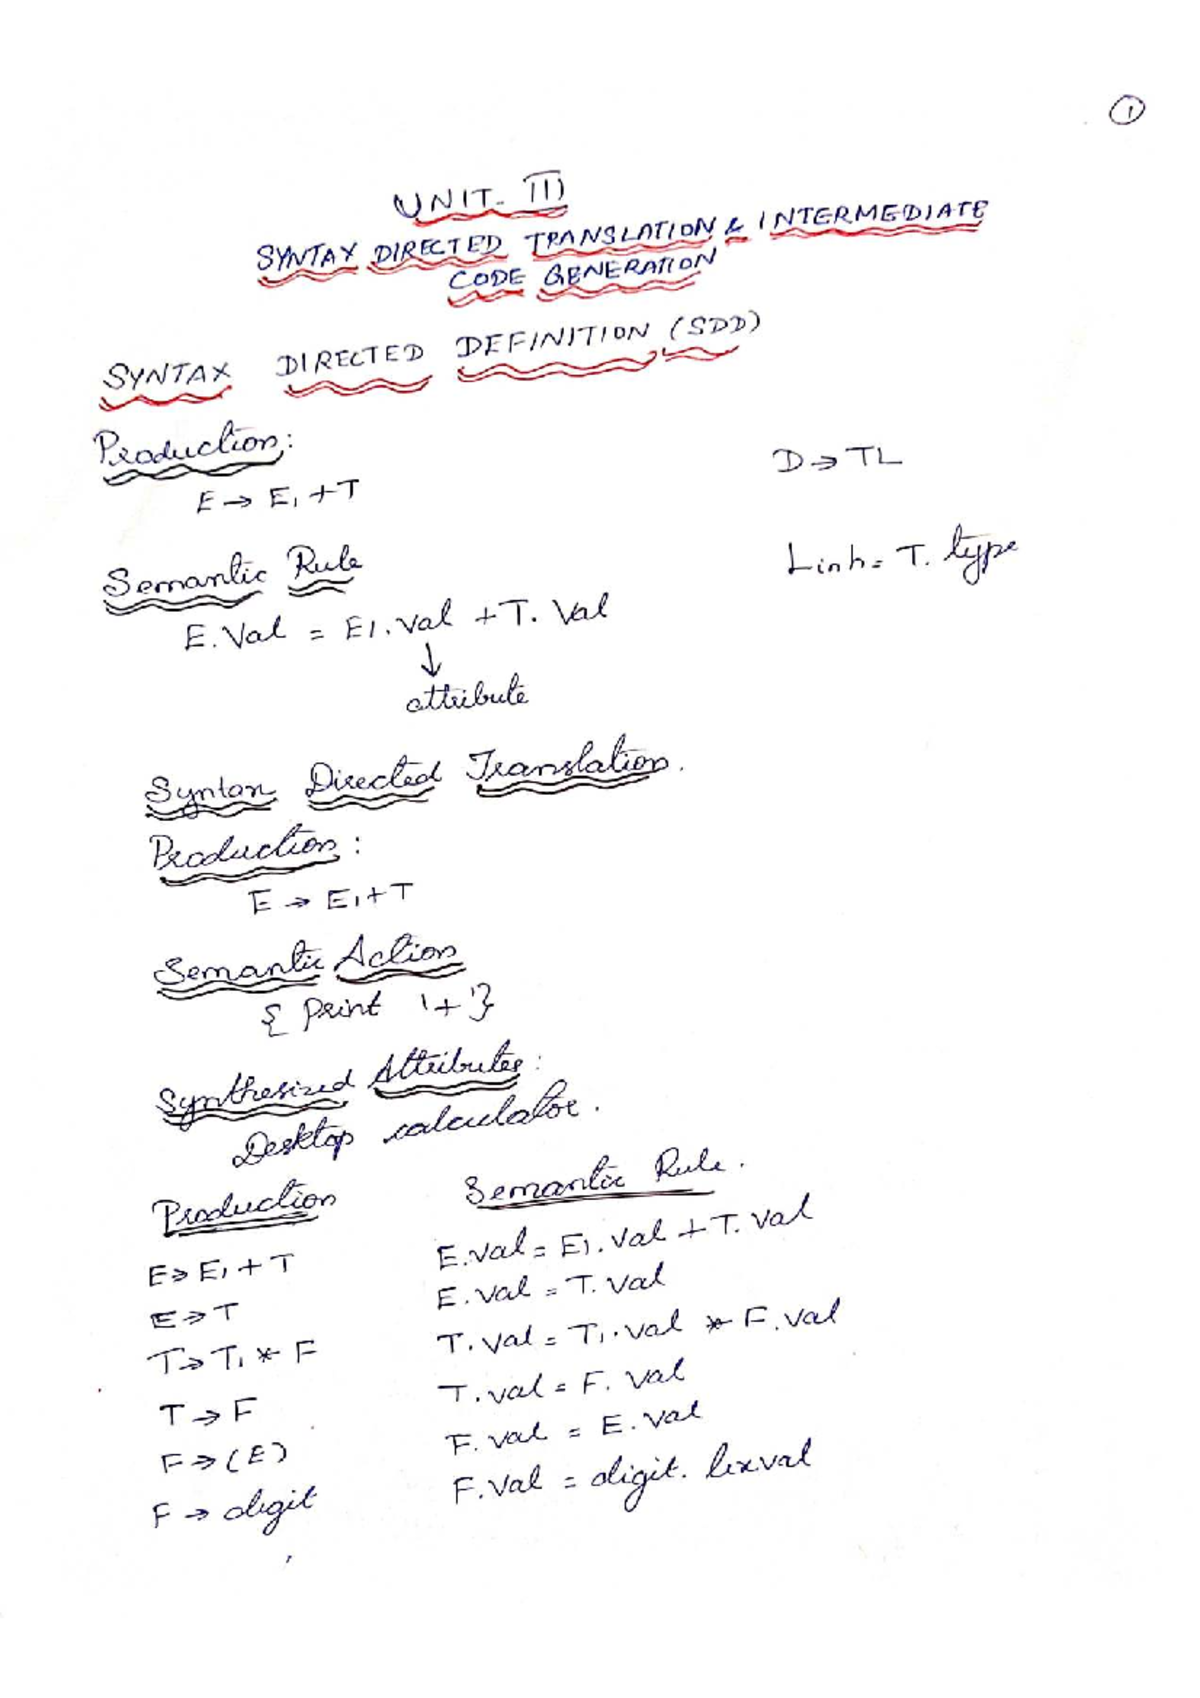 1
UNIT- III
SYNTAX DIRECTED TRANSLATION & INTERMEDIATE
CODE GENERATION
SYNTAX DIRECTED DEFINITION (SDD)
Production:
E → E1 + T
D → TL
Semantic Rule
E.Val = E1.Val + T.Val
↓
attribute
Linh = T.type
Syntax Directed Translation.
Production:
E → E1 + T
Semantic Action
{ Print '+' }
Synthesized Attributes:
Desktop calculator.
Production Semantic Rule.
E → E1 + T E.val = E1.val + T.val
E → T E.val = T.val
T → T1 * F T.val = T1.val * F.val
T → F T.val = F.val
F → (E) F.val = E.val
F → digit F.val = digit.lexval